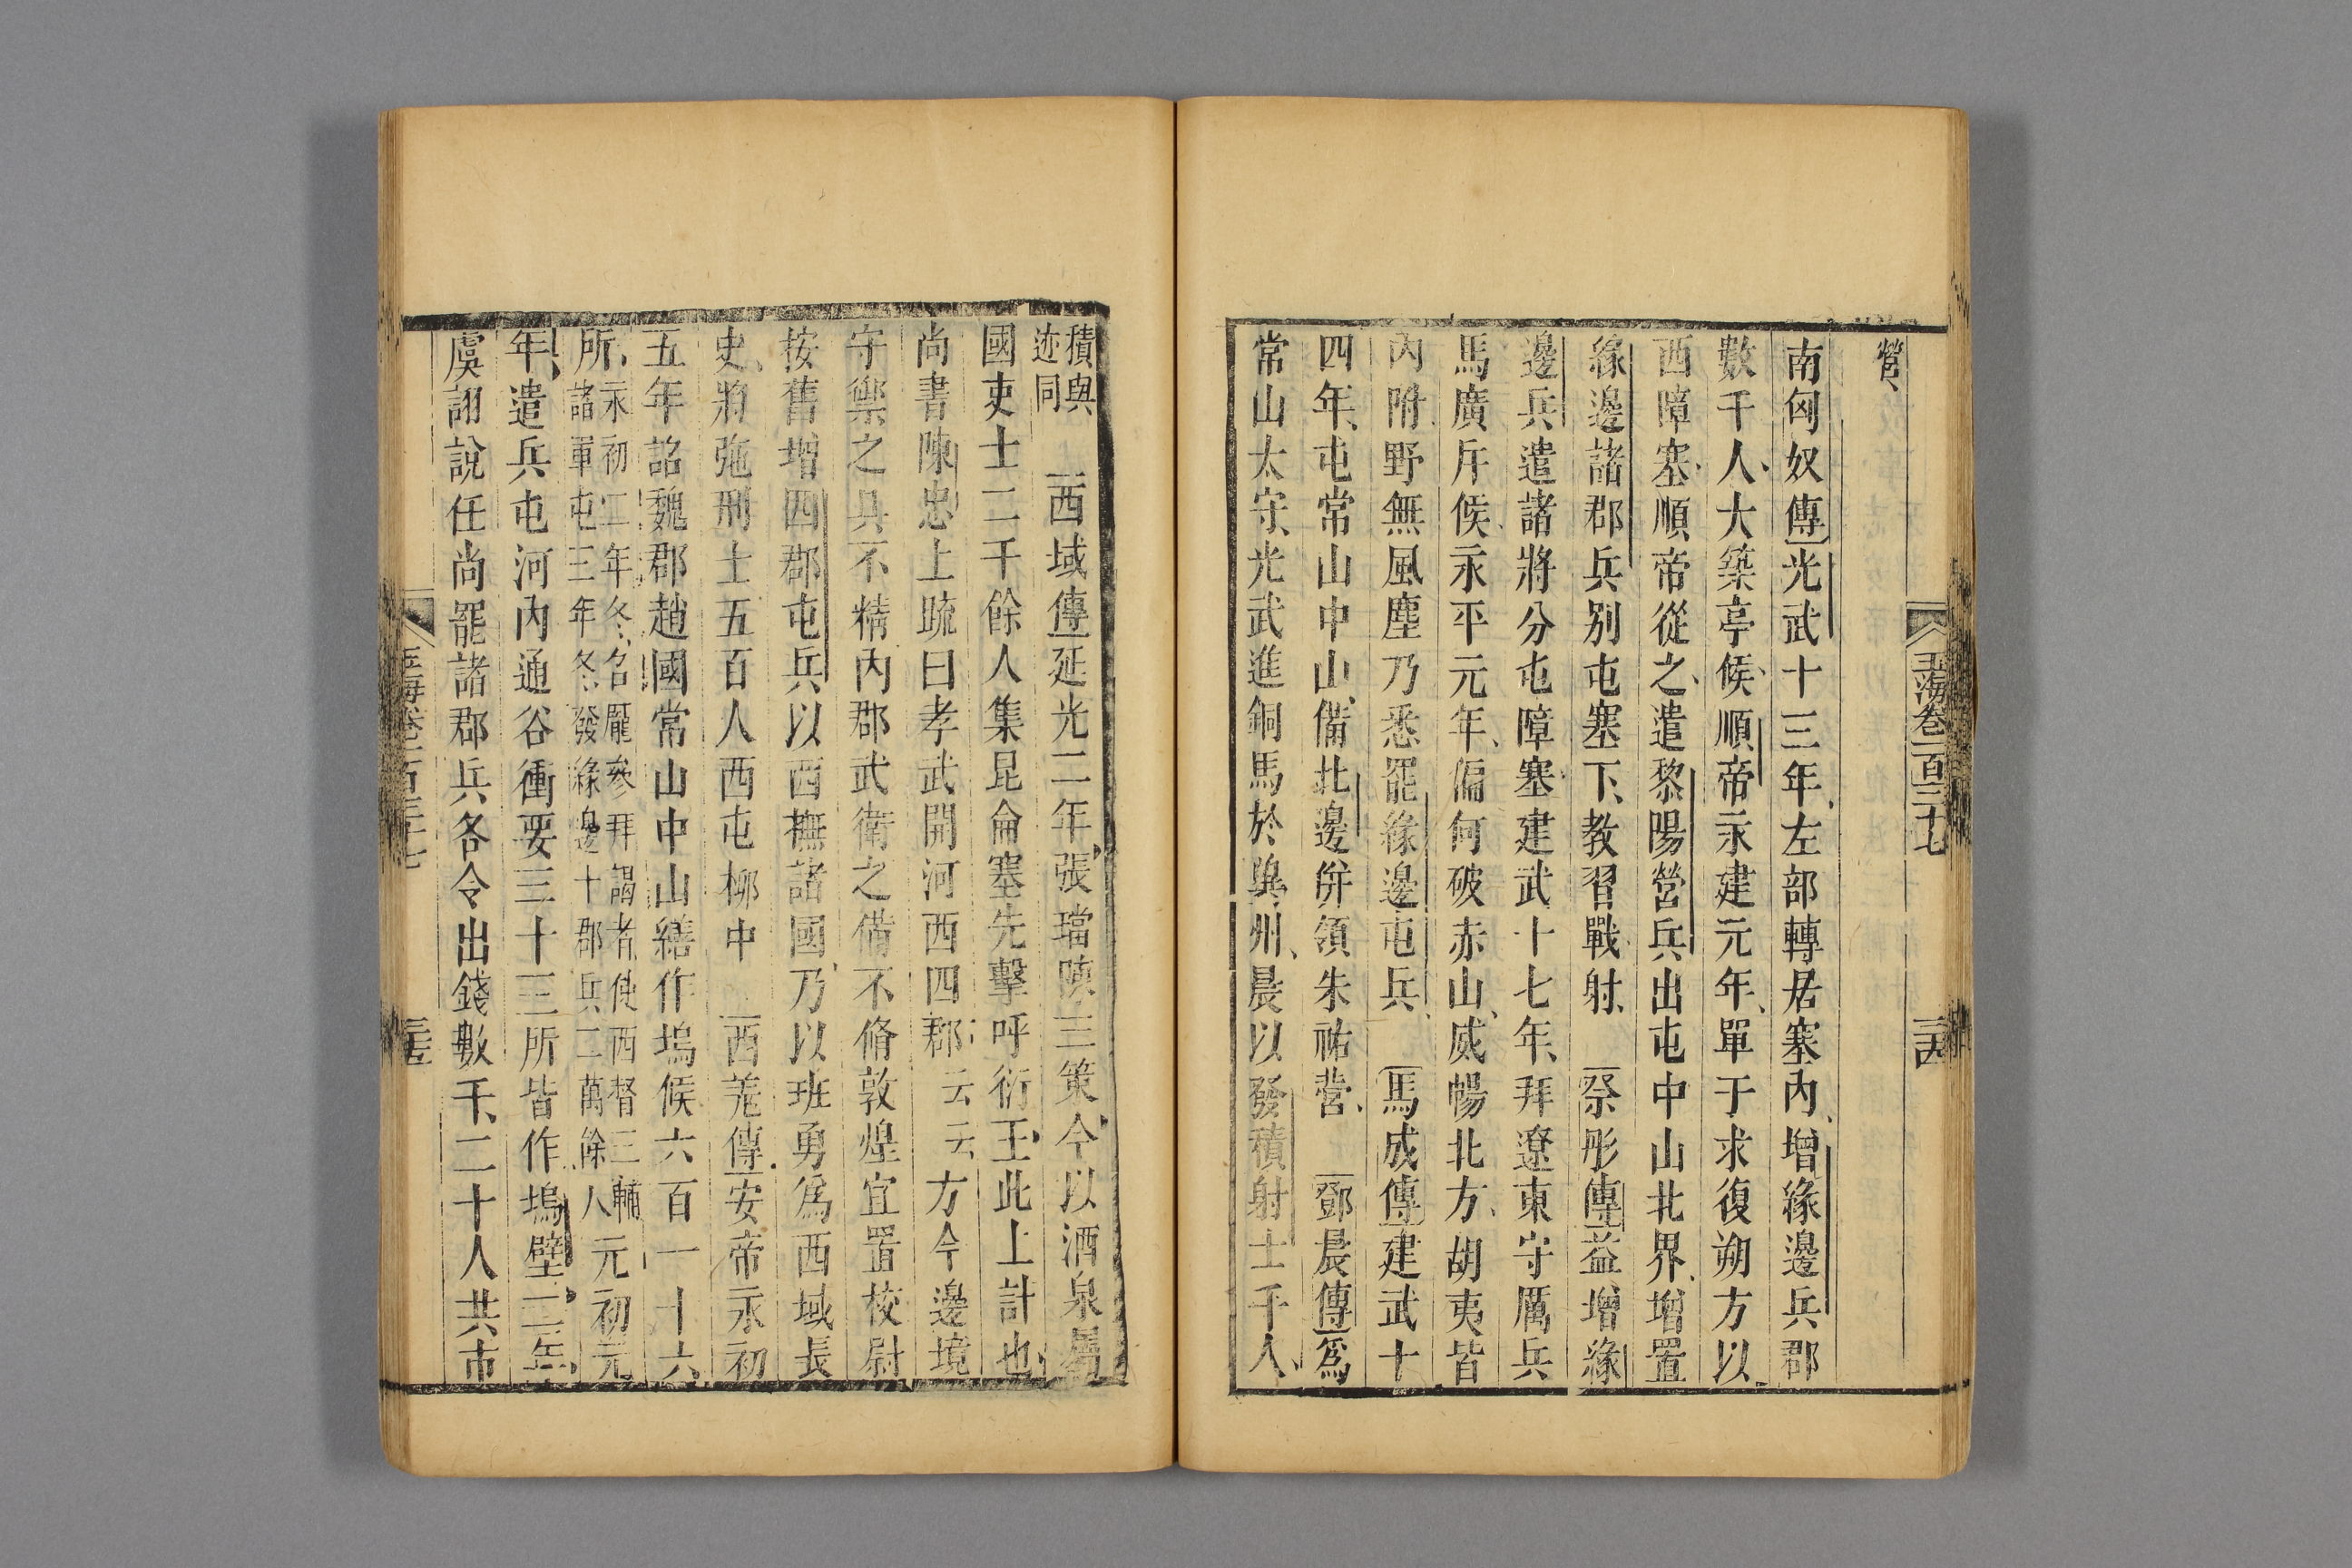 玉海卷一百三十七
二十四
營
南匈奴傳光武十三年左部轉居塞內增緣邊兵郡
數千人大築亭候順帝永建元年單于求復朔方以
西障塞順帝從之遣黎陽營兵出屯中山北界增置
緣邊諸郡兵别屯塞下教習戰射 祭肜傳益增緣
邊兵遣諸將分屯障塞建武十七年拜遼東守厲兵
馬廣斥候永平元年偏何破赤山威暢北方胡夷皆
內附野無風塵乃悉罷緣邊屯兵 馬成傳建武十
四年屯常山中山備北邊併領朱祐營 鄧晨傳爲
常山太守光武進銅馬於冀州晨以發積射士千人
積與
迹同 西域傳延光二年張璫陳三策今以酒泉屬
國吏士二千餘人集昆侖塞先擊呼衍王此上計也
尚書陳忠上疏曰孝武開河西四郡云云方今邊境
守禦之具不精內郡武衛之備不脩敦煌宜置校尉
按舊增四郡屯兵以西撫諸國乃以班勇爲西域長
史將弛刑士五百人西屯柳中 西羌傳安帝永初
五年詔魏郡趙國常山中山繕作塢候六百一十六
所永初二年冬名龐參拜謁者使西督三輔
諸軍屯三年冬發緣邊十郡兵二萬餘人元初元
年遣兵屯河內通谷衝要三十三所皆作塢壁二年
虞詡說任尚罷諸郡兵各令出錢數千二十人共市
玉海卷一百三十七
二十五